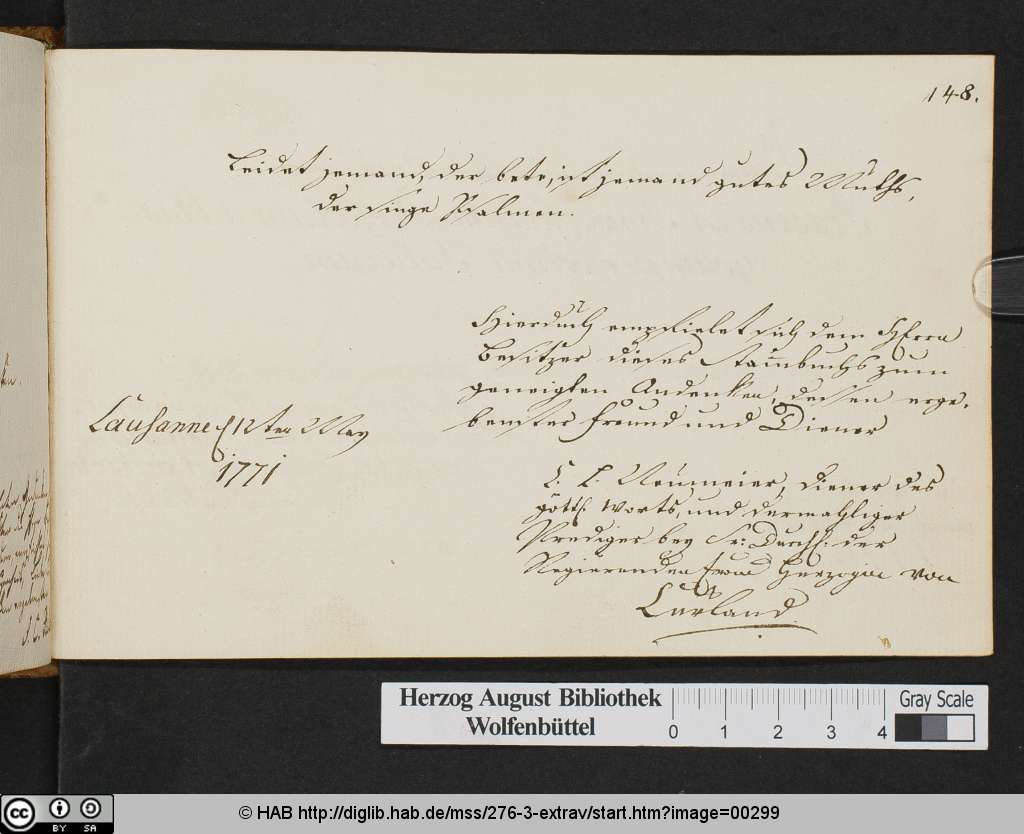 148.
Leidet jemand, der bete, ist jemand gutes Muths,
der singe Psalmen.
Hierdurch empfielet sich dem HHerrn
Besitzer dieses Stammbuchs zum
geneigten Andenken, dessen erge-
benster Freund und Diener
Lausanne d 12ten May
1771
C. L. Neumeier, Diener des
göttl. Worts, und dermahliger
Prediger bey Sr: Durchl: der
Regierenden Frau Herzogin von
Curland
Herzog August Bibliothek
Wolfenbüttel
0 1 2 3 4
Gray Scale
cc BY SA
© HAB http://diglib.hab.de/mss/276-3-extrav/start.htm?image=00299